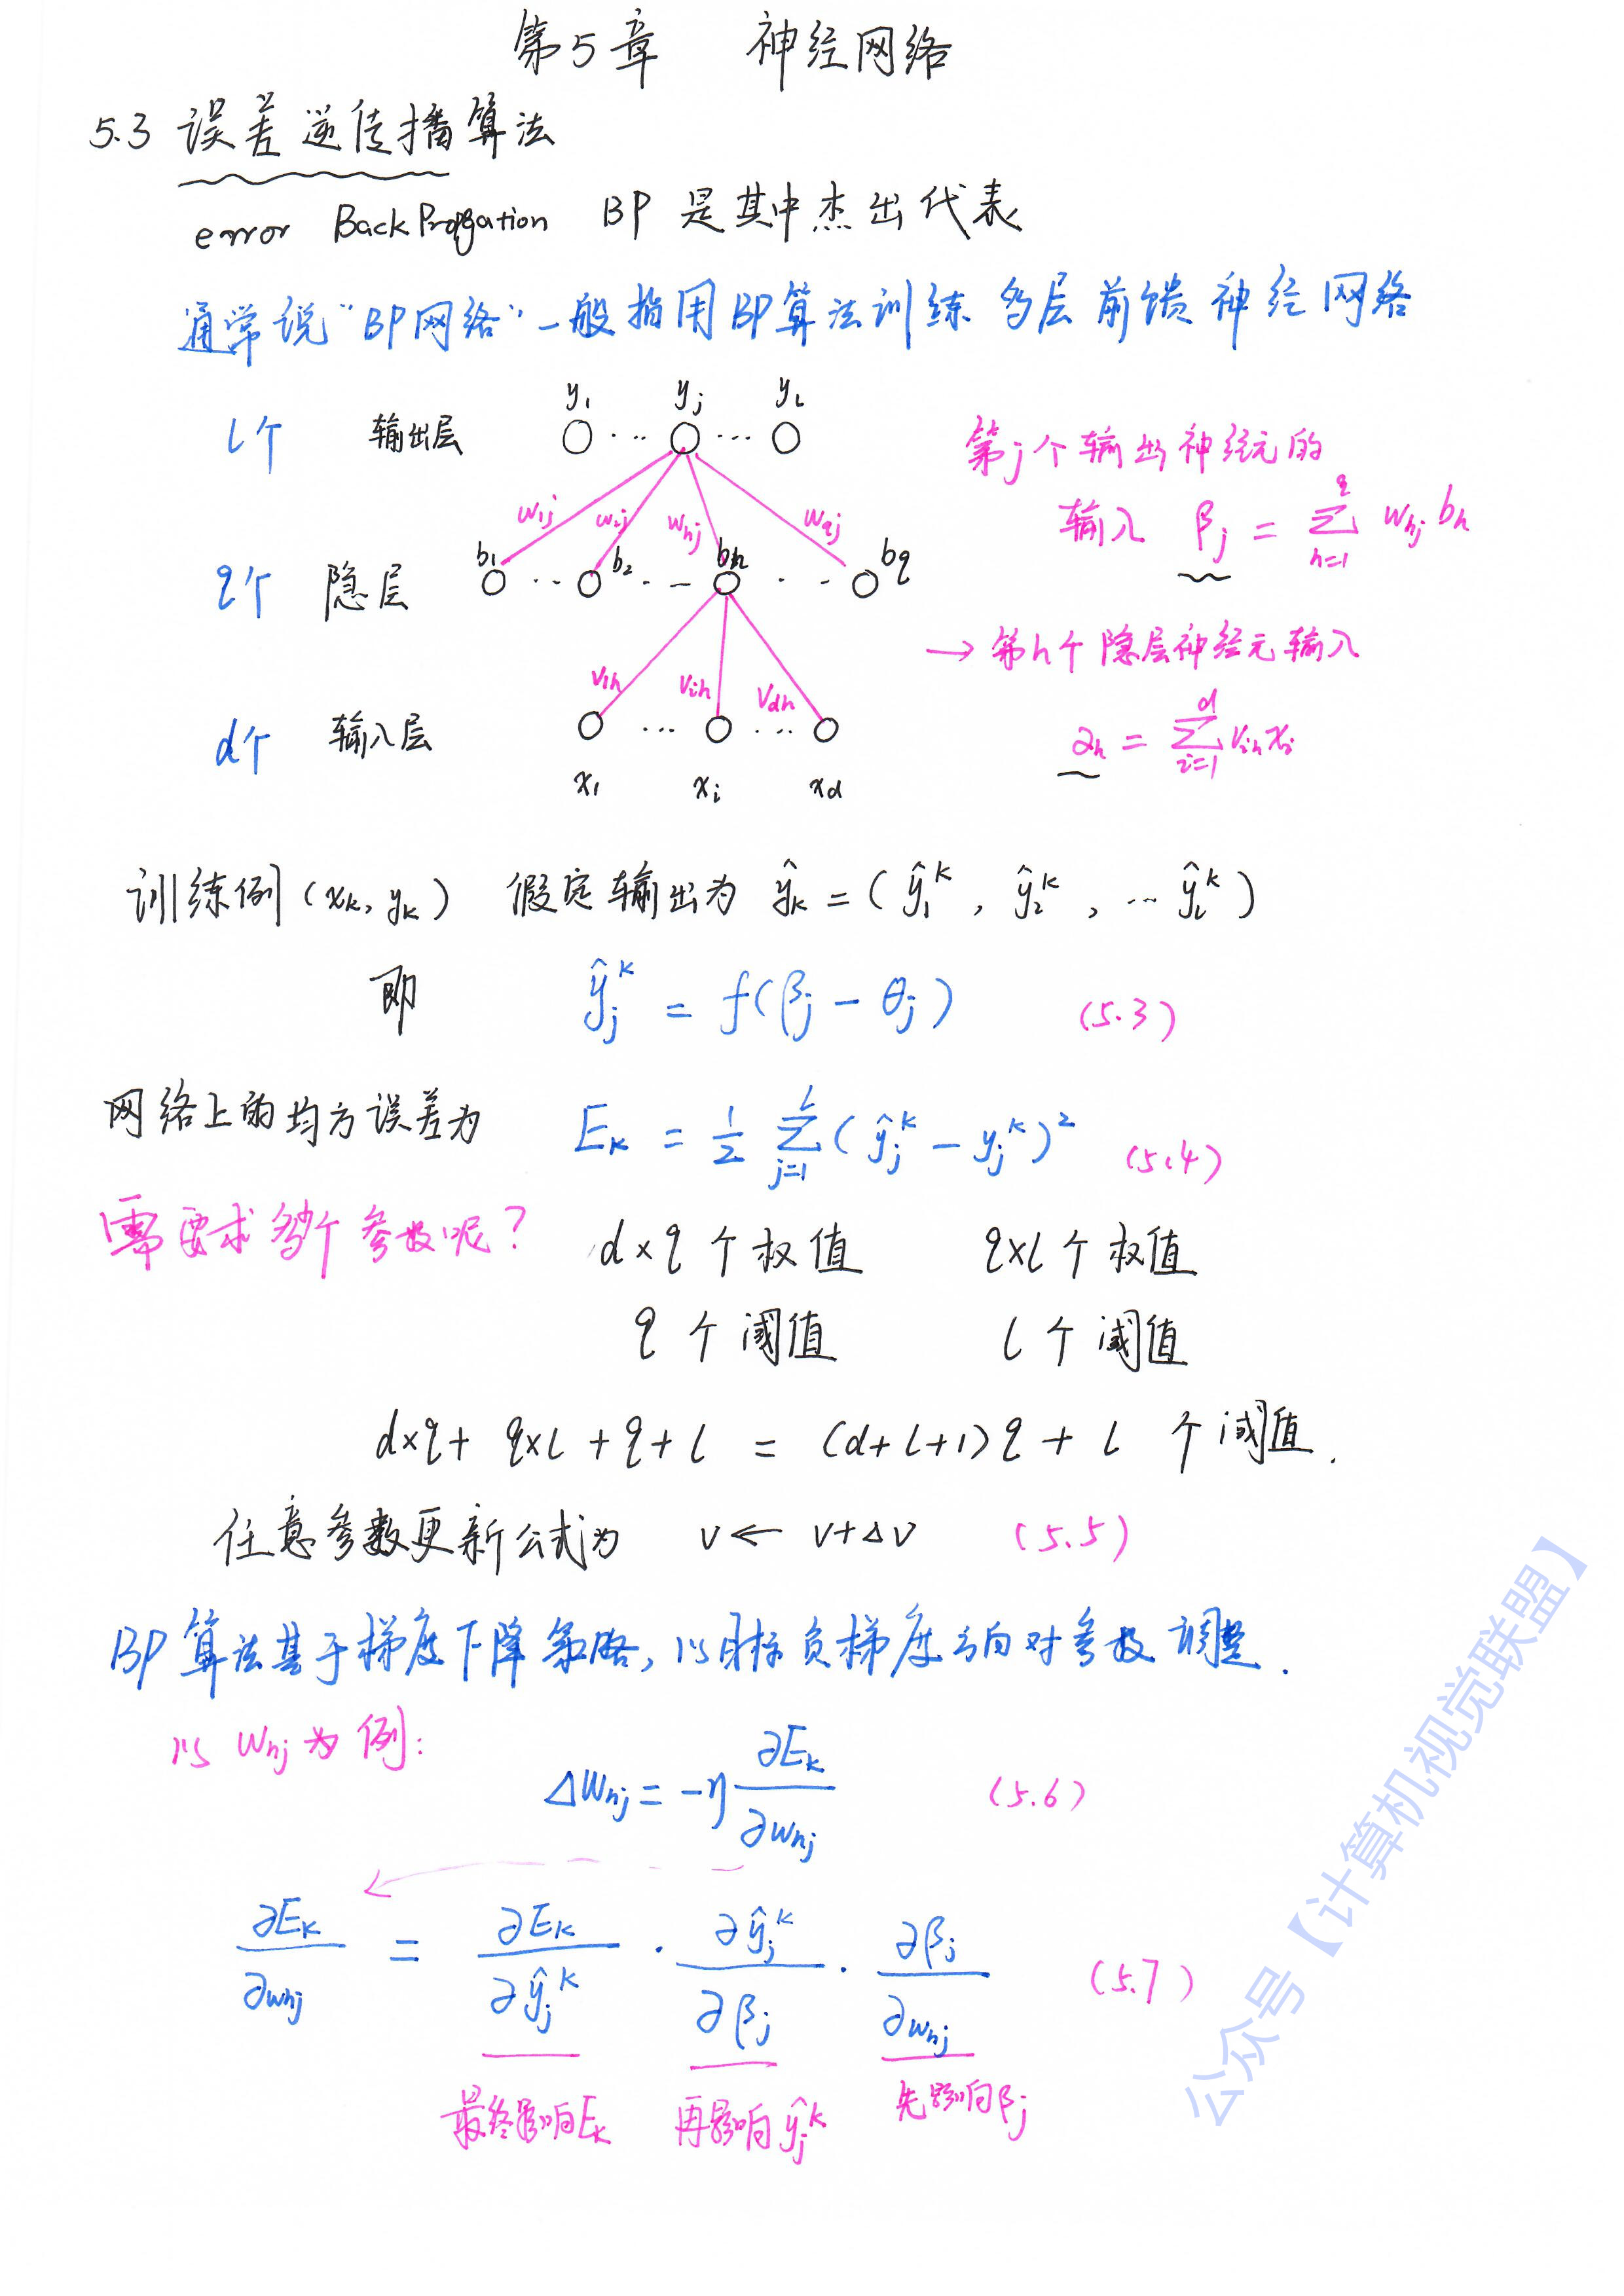 第5章 神经网络
5.3 误差逆传播算法
error BackPropgation BP 是其中杰出代表
通常说"BP网络"一般指用BP算法训练多层前馈神经网络
y₁ yⱼ yₗ
l个 输出层 ··· ···
第j个输出神经元的
输入 βⱼ = Σ_{h=1}^{q} w_{hj} b_h
w_{1j} w_{2j} w_{hj} w_{qj}
b₁ b₂ b_h b_q
q个 隐层
→ 第h个隐层神经元输入
α_h = Σ_{i=1}^{d} v_{ih} x_i
v_{1h} v_{ih} v_{dh}
d个 输入层 ··· ···
x₁ x_i x_d
训练例 (x_k, y_k) 假定输出为 ŷ_k = (ŷ₁^k, ŷ₂^k, ··· ŷ_l^k)
即 ŷ_j^k = f(β_j − θ_j) (5.3)
网络上的均方误差为 E_k = 1/2 Σ_{j=1}^{l} (ŷ_j^k − y_j^k)² (5.4)
需要求多少个参数呢? d×q 个权值 q×l 个权值
q 个阈值 l 个阈值
d×q + q×l + q + l = (d+l+1)q + l 个阈值.
任意参数更新公式为 v ← v+Δv (5.5)
BP算法基于梯度下降策略, 以目标负梯度方向对参数调整.
以 w_{hj} 为例:
Δw_{hj} = −η ∂E_k/∂w_{hj} (5.6)
∂E_k/∂w_{hj} = ∂E_k/∂ŷ_j^k · ∂ŷ_j^k/∂β_j · ∂β_j/∂w_{hj} (5.7)
最终影响E_k 再影响ŷ_j^k 先影响β_j
公众号【计算机视觉联盟】